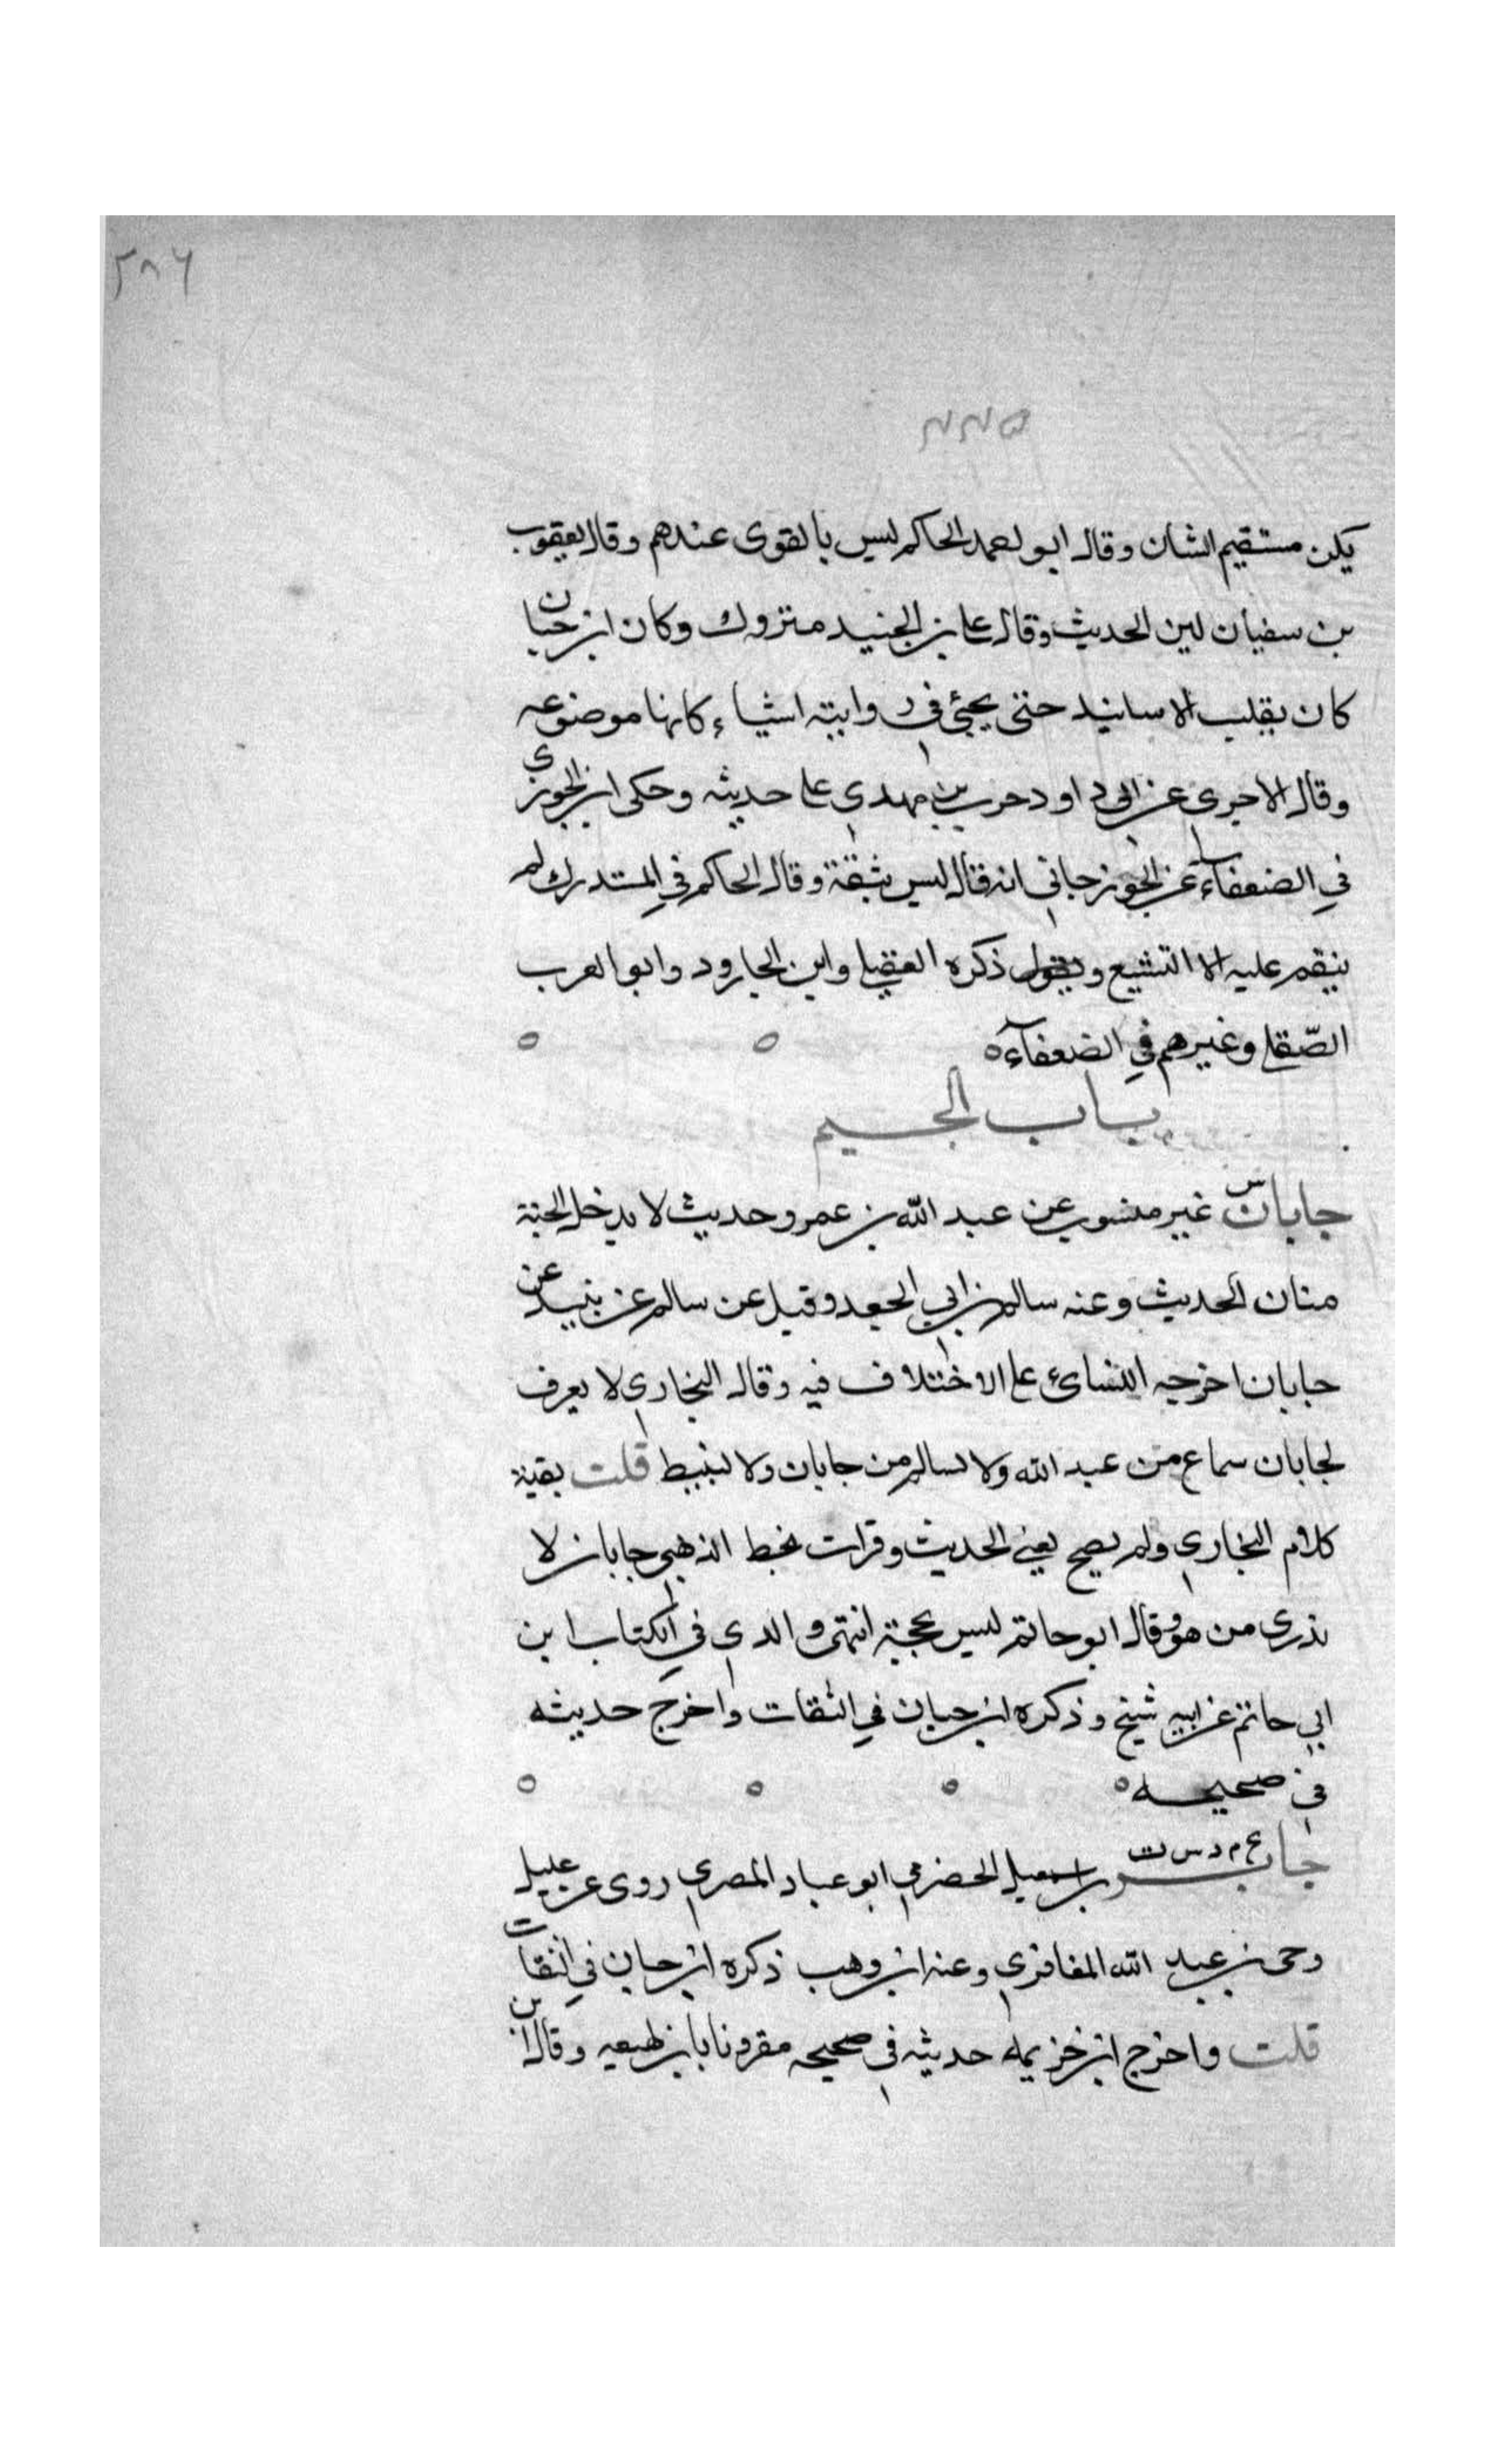 ٢٨٦
٢٢٥
يكن مستقيم الشان وقال ابو احمد الحاكم ليس بالقوى عندهم وقال يعقوب
بن سفيان لين الحديث وقال على بن الجنيد متروك وكان ابن حبان
كان يقلب الاسانيد حتى يجئ فى روايته اشياء كانها موضوعه
وقال الاجرى عن ابى داود حرب بن مهدى على حديثه وحكى ابن الجوزى
في الضعفاء عن الجوزجانى انه قال ليس بثقة وقال الحاكم في المستدرك لم
ينقم عليه الا التشيع و ذكره العقيلى وابن الجارود وابو العرب
الصّقلى وغيرهم في الضعفاء ه ه ه
باب الجيم
س
جابان غير منسوب عن عبد الله بن عمرو حديث لا يدخل الجنة
منان الحديث وعنه سالم بن ابي الجعد وقيل عن سالم عن نبيط عن
جابان اخرجه النسائ على الاختلاف فيه وقال البخارى لا يعرف
لجابان سماع من عبد الله ولا لسالم من جابان ولا لنبيط قلت بقية
كلام البخارى ولم يصح يعنى الحديث وقرات بخط الذهبى جابان لا
يدرى من هو وقال ابو حاتم ليس بحجة انتهى والذى في الكتاب ابن
ابي حاتم عن ابيه شيخ وذكره ابن حبان في الثقات واخرج حديثه
فى صحيحه ه ه ه ه
ع م د س ت
جابر بن اسمعيل الحضرمى ابو عباد المصرى روى عن عقيل
وحى بن عبد الله المعافرى وعنه ابن وهب ذكره ابن حبان في الثقات
قلت واخرج ابن خزيمة حديثه فى صحيحه مقرونا بابن لهيعه وقال ابن